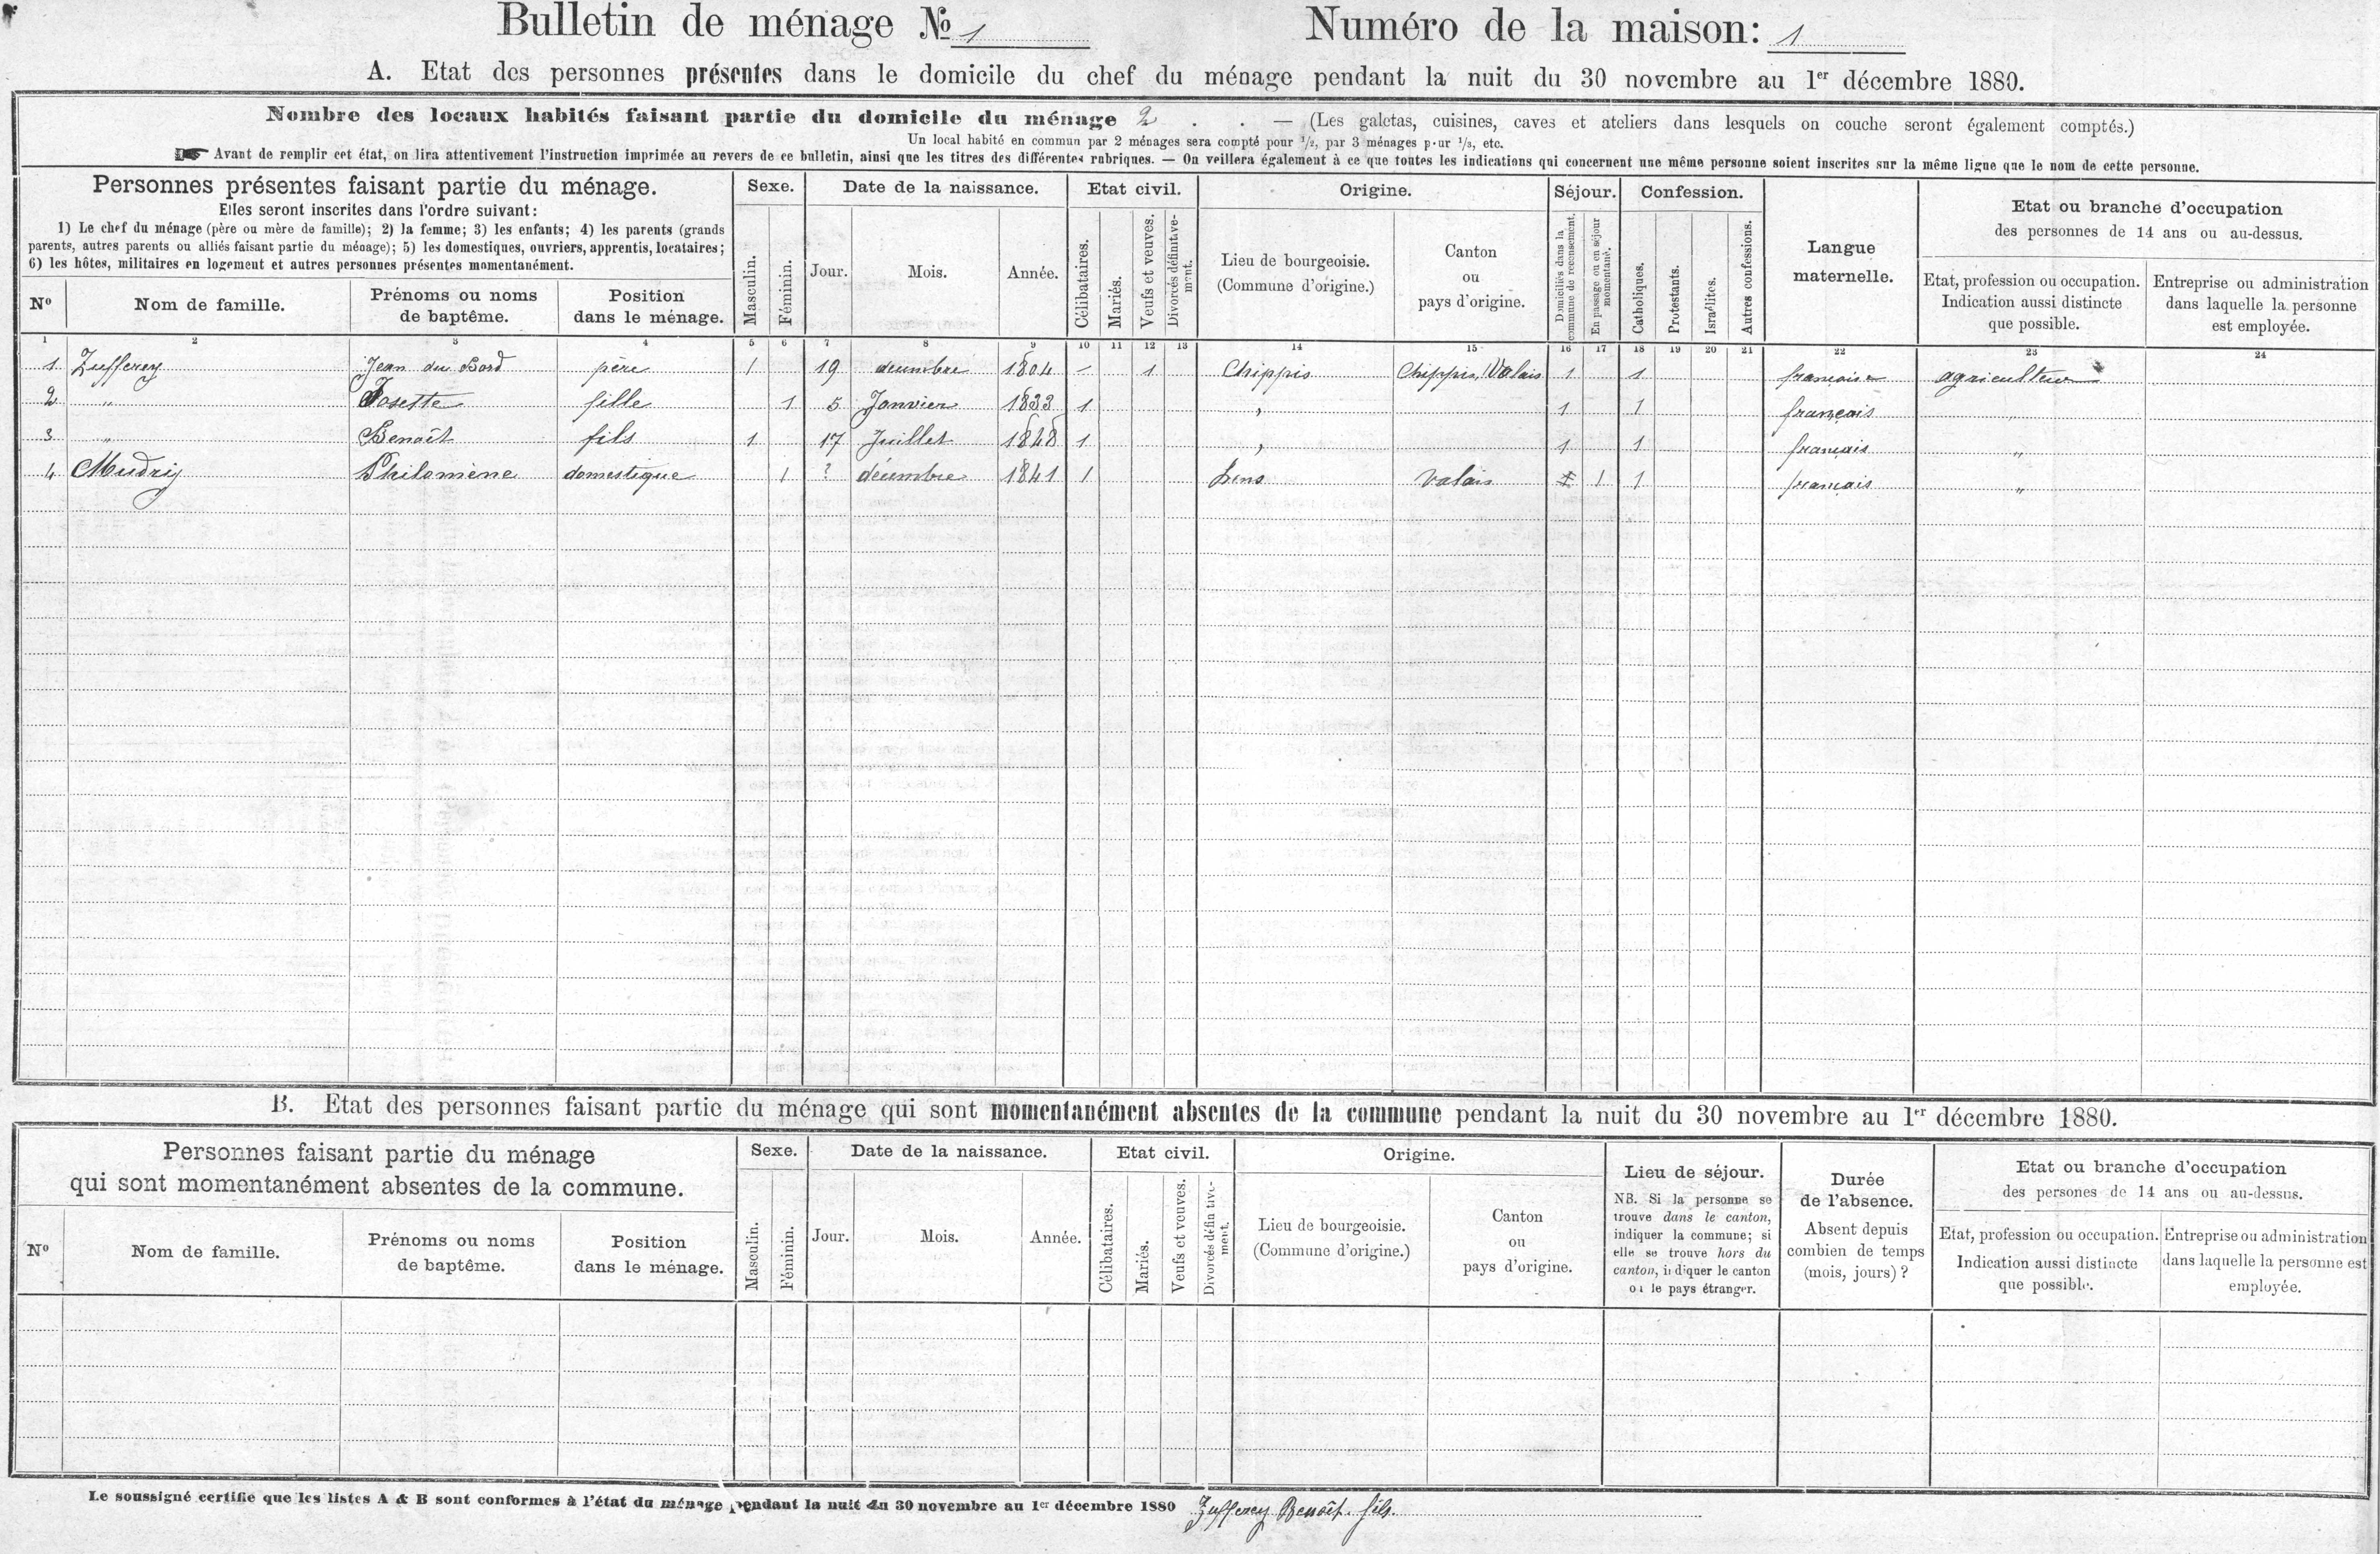 Bulletin de ménage № 1 Numéro de la maison: 1
A. Etat des personnes présentes dans le domicile du chef du ménage pendant la nuit du 30 novembre au 1er décembre 1880.
Nombre des locaux habités faisant partie du domicile du ménage 2 . . — (Les galetas, cuisines, caves et ateliers dans lesquels on couche seront également comptés.)
Un local habité en commun par 2 ménages sera compté pour 1/2, par 3 ménages pour 1/3, etc.
☛ Avant de remplir cet état, on lira attentivement l'instruction imprimée au revers de ce bulletin, ainsi que les titres des différentes rubriques. — On veillera également à ce que toutes les indications qui concernent une même personne soient inscrites sur la même ligne que le nom de cette personne.
Personnes présentes faisant partie du ménage.
Elles seront inscrites dans l'ordre suivant:
1) Le chef du ménage (père ou mère de famille); 2) la femme; 3) les enfants; 4) les parents (grands
parents, autres parents ou alliés faisant partie du ménage); 5) les domestiques, ouvriers, apprentis, locataires;
6) les hôtes, militaires en logement et autres personnes présentes momentanément.
Nº
Nom de famille.
Prénoms ou noms
de baptême.
Position
dans le ménage.
Sexe.
Masculin.
Féminin.
Date de la naissance.
Jour.
Mois.
Année.
Etat civil.
Célibataires.
Mariés.
Veufs et veuves.
Divorcés définitive-
ment.
Origine.
Lieu de bourgeoisie.
(Commune d'origine.)
Canton
ou
pays d'origine.
Séjour.
Domiciliés dans la
commune de recensement.
En passage ou en séjour
momentané.
Confession.
Catholiques.
Protestants.
Israélites.
Autres confessions.
Langue
maternelle.
Etat ou branche d'occupation
des personnes de 14 ans ou au-dessus.
Etat, profession ou occupation.
Indication aussi distincte
que possible.
Entreprise ou administration
dans laquelle la personne
est employée.
1 2 3 4 5 6 7 8 9 10 11 12 13 14 15 16 17 18 19 20 21 22 23 24
1 Zufferey Jean du Bord père 1 19 decembre 1804 – 1 Chippis Chippis, Valais 1 1 française agriculteur
2 " Josette fille 1 5 Janvier 1833 1 , 1 1 français "
3 " Benoît fils 1 17 Juillet 1848 1 , 1 1 français "
4 Mudry Philomène domestique 1 ? décembre 1841 1 Lens Valais 1 1 1 français "
B. Etat des personnes faisant partie du ménage qui sont momentanément absentes de la commune pendant la nuit du 30 novembre au 1er décembre 1880.
Personnes faisant partie du ménage
qui sont momentanément absentes de la commune.
Nº
Nom de famille.
Prénoms ou noms
de baptême.
Position
dans le ménage.
Sexe.
Masculin.
Féminin.
Date de la naissance.
Jour.
Mois.
Année.
Etat civil.
Célibataires.
Mariés.
Veufs et veuves.
Divorcés définitive-
ment.
Origine.
Lieu de bourgeoisie.
(Commune d'origine.)
Canton
ou
pays d'origine.
Lieu de séjour.
NB. Si la personne se
trouve dans le canton,
indiquer la commune; si
elle se trouve hors du
canton, indiquer le canton
ou le pays étranger.
Durée
de l'absence.
Absent depuis
combien de temps
(mois, jours)?
Etat ou branche d'occupation
des persones de 14 ans ou au-dessus.
Etat, profession ou occupation.
Indication aussi distincte
que possible.
Entreprise ou administration
dans laquelle la personne est
employée.
Le soussigné certifie que les listes A & B sont conformes à l'état du ménage pendant la nuit du 30 novembre au 1er décembre 1880 Zufferey Benoît. fils.